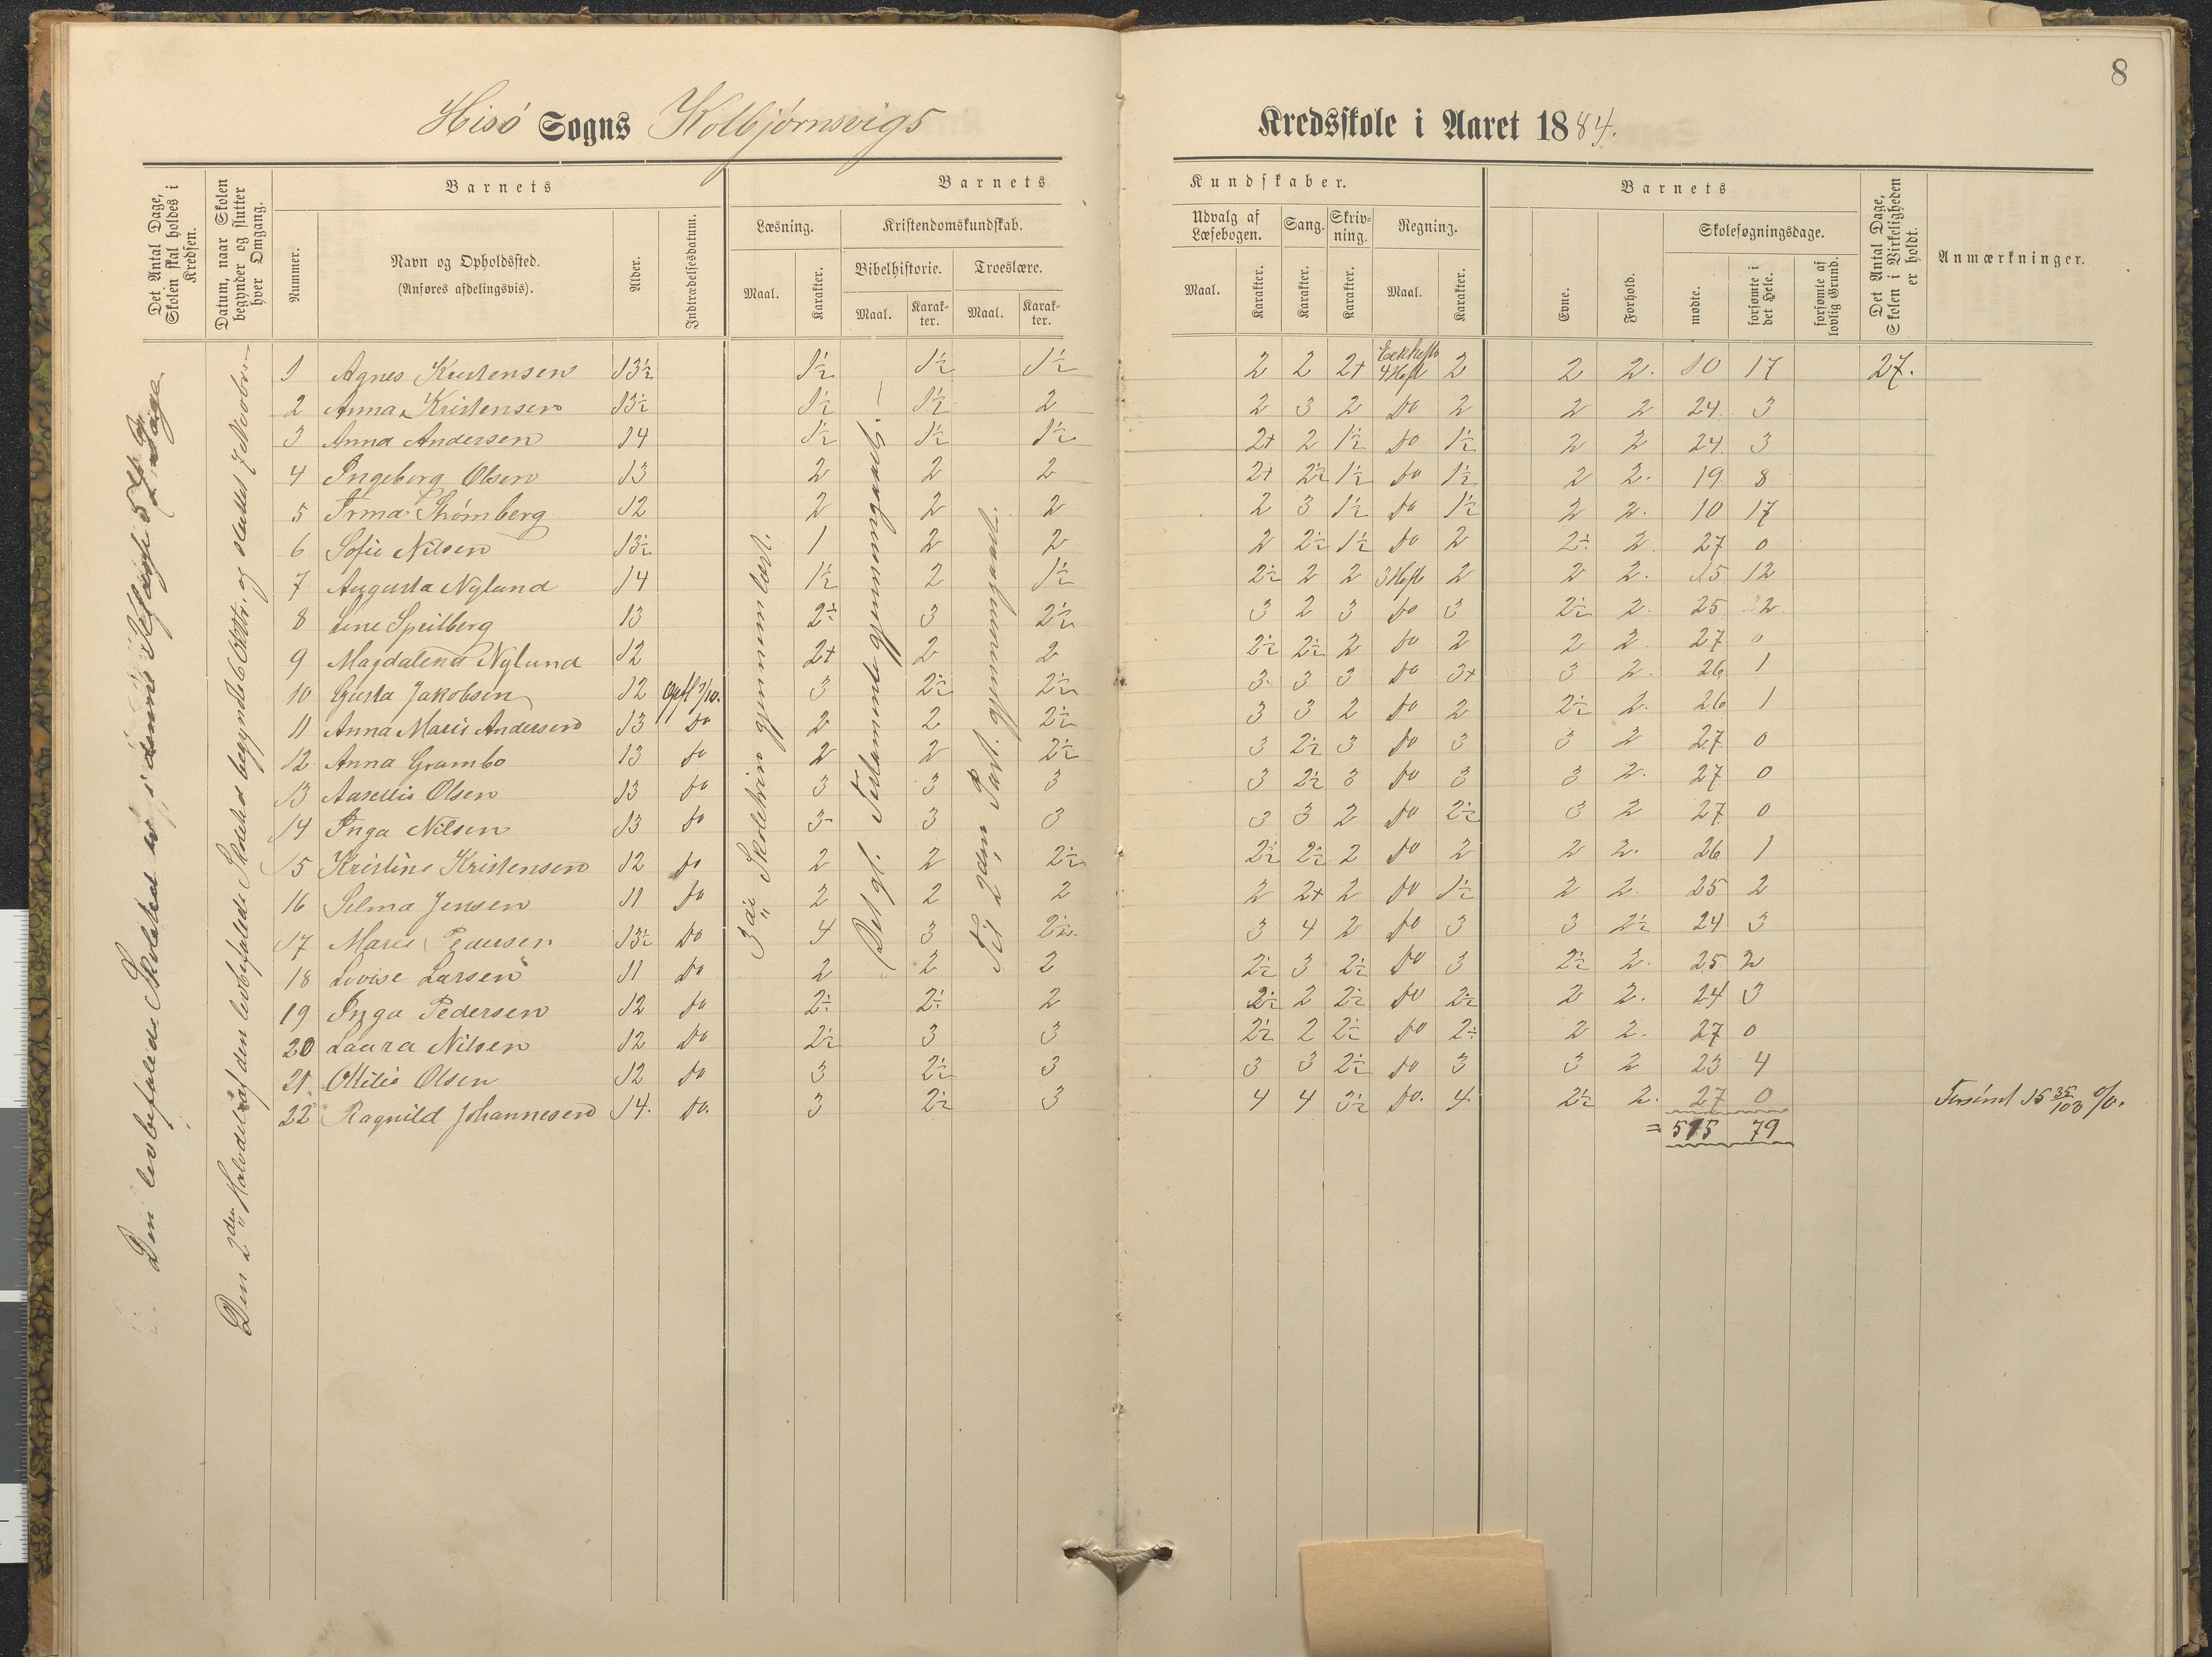 8
Hisö Sogns Kolbjørnsvigs Kredsskole i Aaret 1884.
Det Antal Dage, Skolen skal holdes i Kredsen.
Datum, naar Skolen begynder og slutter hver Omgang.
Barnets
Nummer.
Navn og Opholdssted.
(Anføres afdelingsvis).
Alder.
Indtrædelsesdatum.
Barnets Kundskaber.
Læsning.
Maal.
Karakter.
Kristendomskundskab.
Bibelhistorie.
Maal.
Karakter.
Troeslære.
Maal.
Karakter.
Udvalg af Læsebogen.
Maal.
Karakter.
Sang.
Karakter.
Skrivning.
Karakter.
Regning.
Maal.
Karakter.
Barnets
Evne.
Forhold.
Skolesøgningsdage.
mødte.
forsømte i det Hele.
forsømte af lovlig Grund.
Det Antal Dage, Skolen i Virkeligheden er holdt.
Anmærkninger.
1 Agnes Kristensen 13½ 1½ 1½ 1½ 2 2 2+ 4 Heft 2 2 2. 10 17 27.
2 Anna Kristensen 13½ 1½ 1½ 2 2 3 2 do 2 2 2 24 3
3 Anna Andersen 14 1½ 1½ 1½ 2+ 2 1½ do 1½ 2 2 24 3
4 Ingeborg Olsen 13 2 2 2 2+ 2½ 1½ do 1½ 2 2. 19 8
5 Irma Strømberg 12 2 2 2 2 3 1½ do 1½ 2 2. 10 17
6 Sofie Nilsen 13½ 1 2 2 2 2½ 1½ do 2 2½ 2 27 0
7 Augusta Nylund 14 1½ 2 1½ 2½ 2 2 3 Heft 2 2 2. 15 12
8 Line Speilberg 13 2½ 3 2½ 3 2 3 do 3 2½ 2. 25 2
9 Magdalena Nylund 12 2+ 2 2 2½ 2½ 2 do 2 2 2 27 0
10 Gusta Jakobsen 12 opfl 7/10. 3 2½ 2½ 3 3 3 do 3+ 3 2. 26 1
11 Anna Marie Andersen 13 do 2 2 2½ 3 3 2 do 2 2½ 2. 26 1
12 Anna Grambo 13 do 2 2 2½ 3 2½ 3 do 3 3 2 27 0
13 Olsen 13 do 3 3 3 3 2½ 3 do 3 3 2. 27 0
14 Inga Nilsen 13 do 3 3 3 3 3 2 do 2½ 3 2 27 0
15 Kristine Kristensen 12 do 2 2 2½ 2½ 2½ 2 do 2 2 2. 26 1
16 Selma Jensen 11 do 2 2 2 2 2+ 2 do 1½ 2 2 25 2
17 Marie Pedersen 13½ do 4 3 2½ 3 4 2 do 3 3 2½ 24 3
18 Lovise Larsen 11 do 2 2 2 2½ 3 2½ do 3 2½ 2. 25 2
19 Inga Pedersen 12 do 2½ 2½ 2 2½ 2 2½ do 2½ 2 2. 24 3
20 Laura Nilsen 12 do 2½ 3 3 2½ 2 2½ do 2½ 2 2. 27 0
21 Ottilie Olsen 12 do 3 2½ 3 3 3 2½ do 3 3 2 23 4
22 Ragnild Johannesen 14. do. 3 2½ 3 4 4 3½ do. 4 2½ 2. 27 0 Forsömt 15 35/103 %.
= 515 79
Den lovbefalede Skoletid er i denne
Den 2den Halvdel af den lovbefalede Skoletid begyndte 6 Oktbr. og sluttet 7 Novbr.
3die Skoletrin gjennemlæst.
Det gl. Testamente gjennemgaaet.
Til 2den Part. gjennemgaaet.